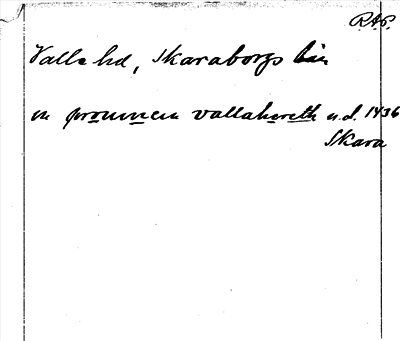 R.A.P.
Valle hd, Skaraborgs län
in prouincia vallahæreth u.d. 1436
Skara